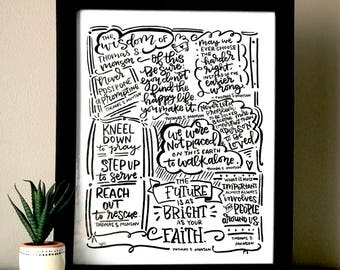 THE
WISDOM OF
THOMAS S
MONSON
Never
POSTPONE
a
PROMPTING
THOMAS S. MONSON
Of this
Be Sure
you don't
find the
happy life
you make it
may we
EVER CHOOSE
the
harder
right
INSTEAD OF the
easier
wrong
THOMAS S. MONSON
Never let a
problem to be
solved
become more
important
than a
person
to be
LOVED
KNEEL
DOWN
to pray
STEP UP
to serve
REACH
OUT
to rescue
THOMAS S. MONSON
We were
NOT PLACED
ON THIS EARTH
TO walk alone.
THOMAS S. MONSON
THE
FUTURE
IS AS
BRIGHT
as your
FAITH
THOMAS S. MONSON
WHAT IS MOST
IMPORTANT
ALMOST ALWAYS
involves
the PEOPLE
AROUND
US
THOMAS S.
MONSON